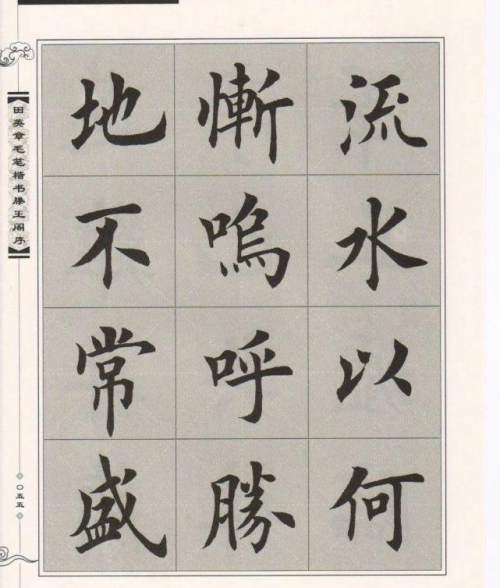 流水以何
慚嗚呼勝
地不常盛
【田英章毛笔楷书滕王阁序】
○五五